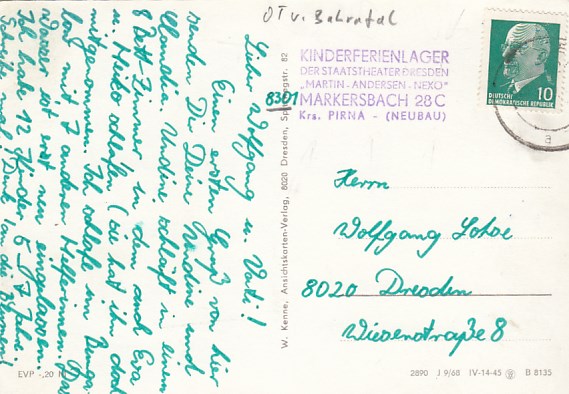 OT v. Bahratal
KINDERFERIENLAGER
DER STAATSTHEATER DRESDEN
„MARTIN-ANDERSEN-NEXÖ"
8301 MARKERSBACH 28 C
Krs. PIRNA - (NEUBAU)
DEUTSCHE
DEMOKRATISCHE REPUBLIK
10
a
Lieber Wolfgang u. Vati!
Einen ersten Gruß von hier
senden Dir Deine Undine und
Claudia. Undine schläft in einem
8 Bett-Zimmer in dem auch Eva
u. Heiko schlafen (sie hat ihn doch
mitgenommen. Ich schlafe im Bunga-
low mit 7 anderen Helferinnen. Das
Wasser wird erst neu eingelassen.
Ich habe 12 Kinder 6-7 Jahre.
Schreibe mal! Denk an die Blumen!
W. Kenne, Ansichtskarten-Verlag, 8020 Dresden, 82
Herrn
Wolfgang
8020 Dresden
Wiesenstraße 8
EVP -,20 M
2890 J 9/68 IV-14-45 B 8135